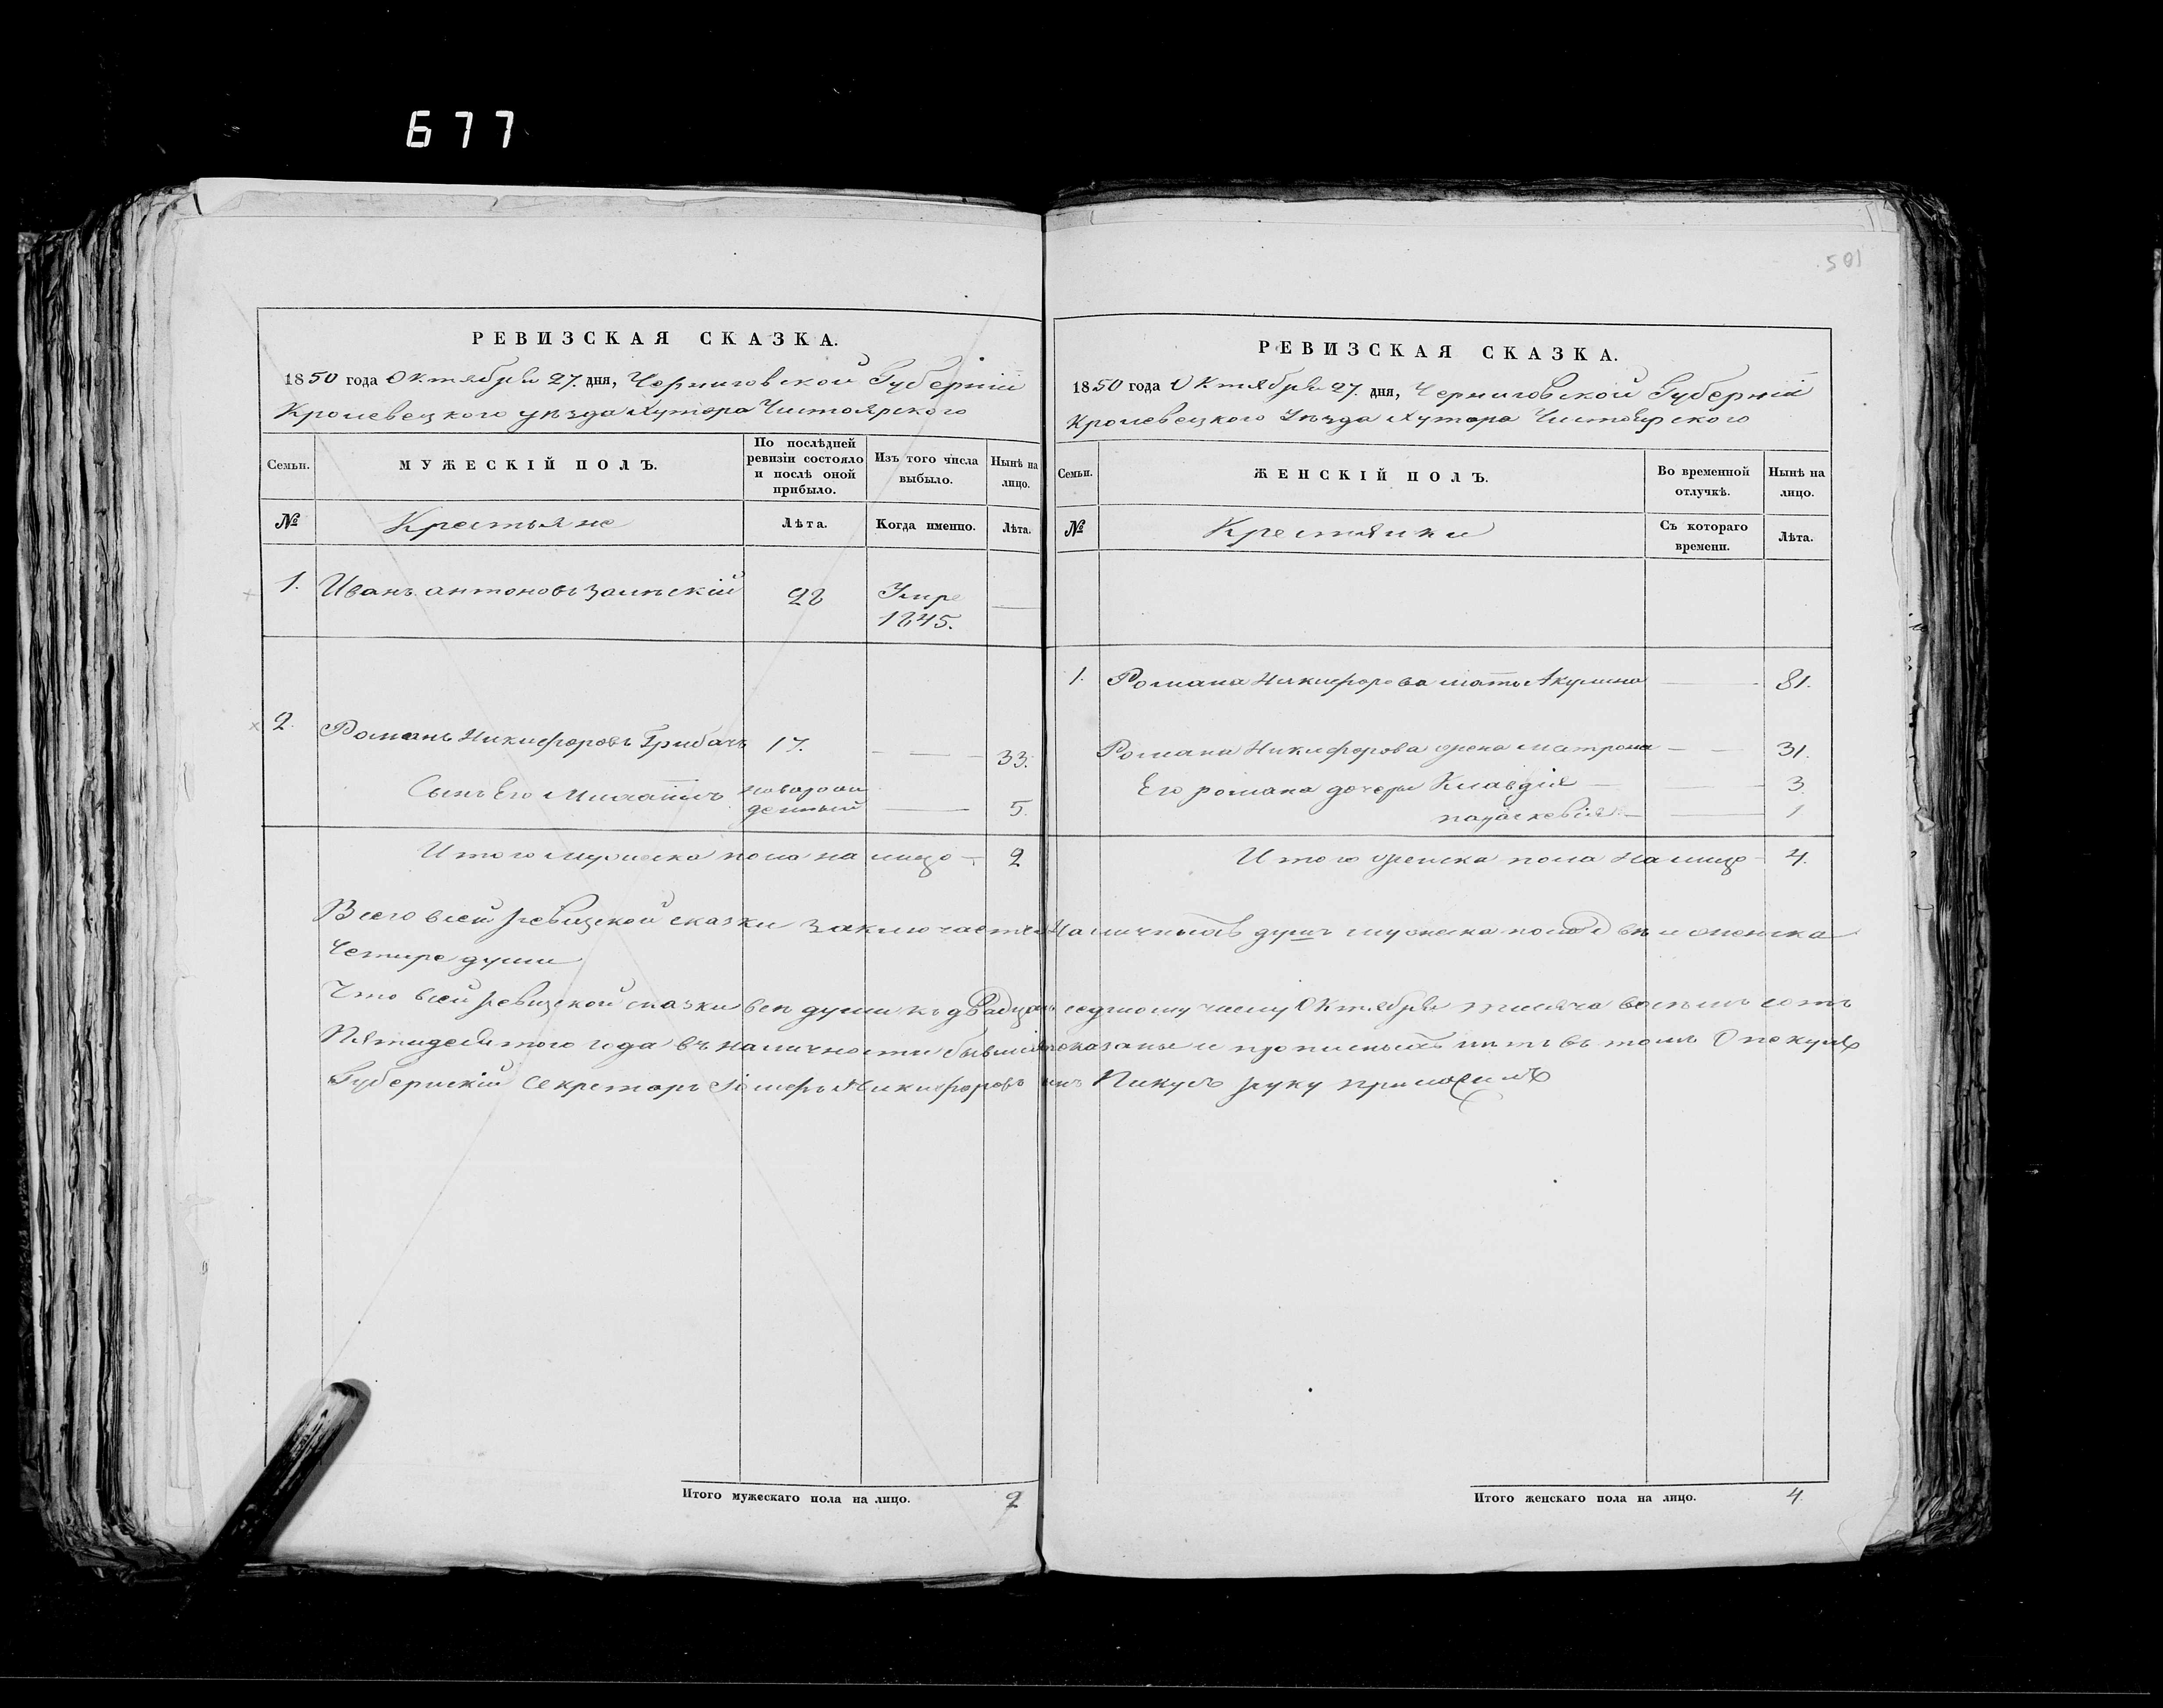 677
501
РЕВИЗСКАЯ СКАЗКА.
1850 года Октября 27. дня, Черниговской Губерніи
Кролевецкого уѣзда Хутора Чистоярского
Семьи.
МУЖЕСКІЙ ПОЛЪ.
По послѣдней ревизіи состояло и послѣ оной прибыло.
Изъ того числа выбыло.
Нынѣ на лицо.
№
Крестьяне
Лѣта.
Когда именно.
Лѣта.
1. Иванъ антоновъ 28 Умре 1845. —
2. Романъ Никифоровъ Грибачъ 17. — 33.
Сынъ Его Михаилъ новорожденный — 5.
Итого мужеска пола на лицо — 2
РЕВИЗСКАЯ СКАЗКА.
1850 года Октября 27. дня, Черниговской Губерніи
Кролевецкого Уѣзда Хутора Чистоярского
Семьи.
ЖЕНСКІЙ ПОЛЪ.
Во временной отлучкѣ.
Нынѣ на лицо.
№
Крестянки
Съ котораго времени.
Лѣта.
1. Романа Никифорова мать Акулина — 81.
Романа Никифорова жена Матрона — 31.
Его романа дочери Клавдія — 3.
параскевія — 1
Итого женска пола на лицо 4.
Всего всей ревизской сказки заключается Наличныхъ душъ мужеска пола двѣ и женска
Четире души
Что всей ревизской сказки всѣ души къ двадцать седмому числу Октября тисяча восемь сотъ
Пятидесятого года въ наличности бывшія показаны и прописныхъ нѣтъ въ томъ Опекунъ
Губернскій Секретарь Никифоровъ сынъ Пикулъ руку приложилъ
Итого мужескаго пола на лицо. 2
Итого женскаго пола на лицо. 4.